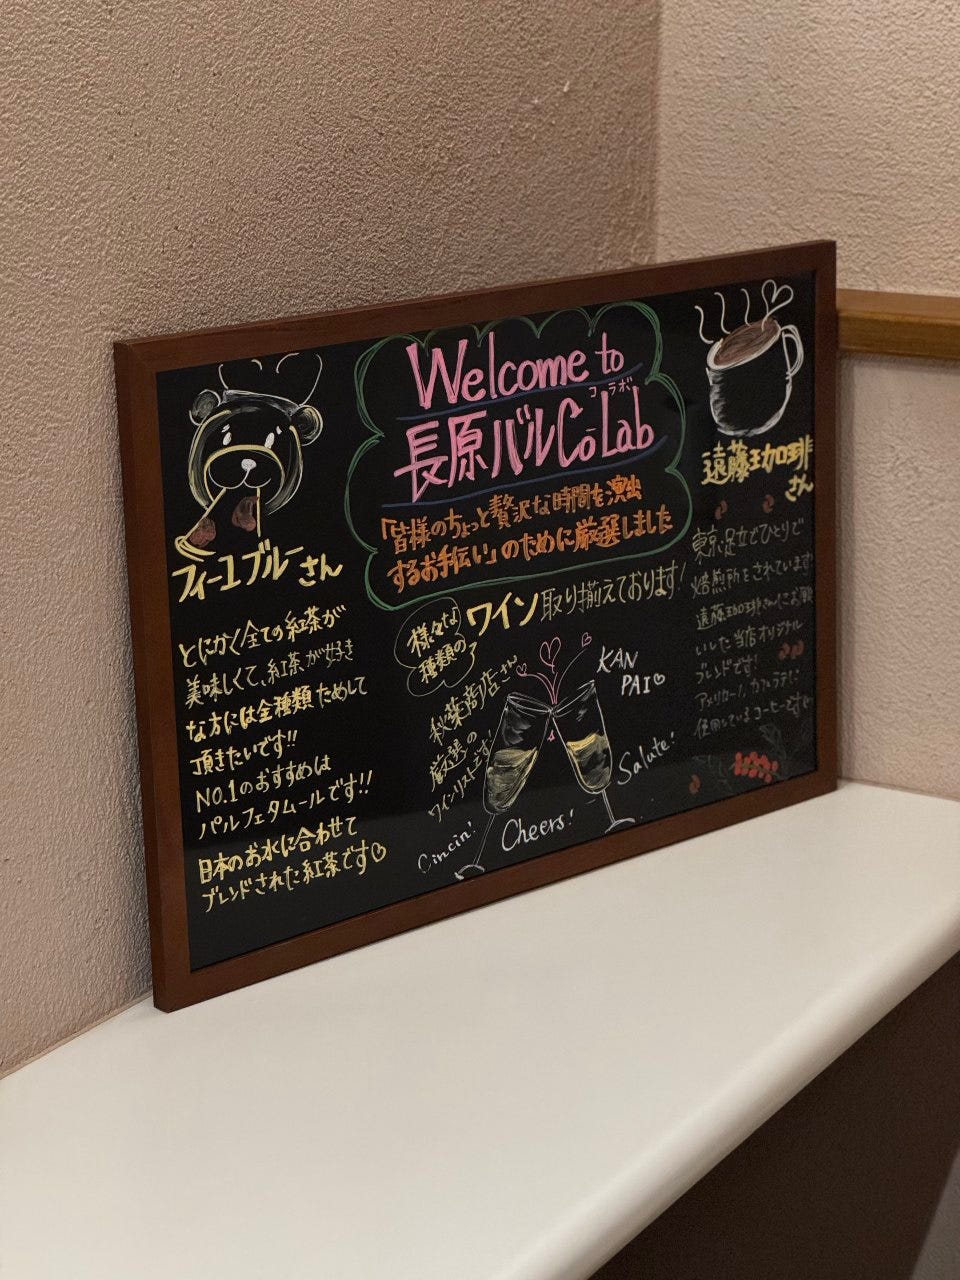 Welcome to
コラボ
長原バルCoLab
「皆様のちょっと贅沢な時間を演出
するお手伝い」のために厳選しました
フィーユブルーさん
とにかく全ての紅茶が
美味しくて、紅茶が好き
な方には全種類ためして
頂きたいです!!
No.1のおすすめは
パルフェタムールです!!
日本のお水に合わせて
ブレンドされた紅茶です♡
様々な
種類の
ワイン取り揃えております!
秋葉商店さん
厳選の
ワインリストです!
KAN
PAI♡
Salute!
Cheers!
Cincin!
遠藤珈琲
さん
東京・足立でひとりで
焙煎所をされています!
遠藤珈琲さんにお願
いした当店オリジナル
ブレンドです!
アメリカーノ、カフェラテに
使用しているコーヒーです